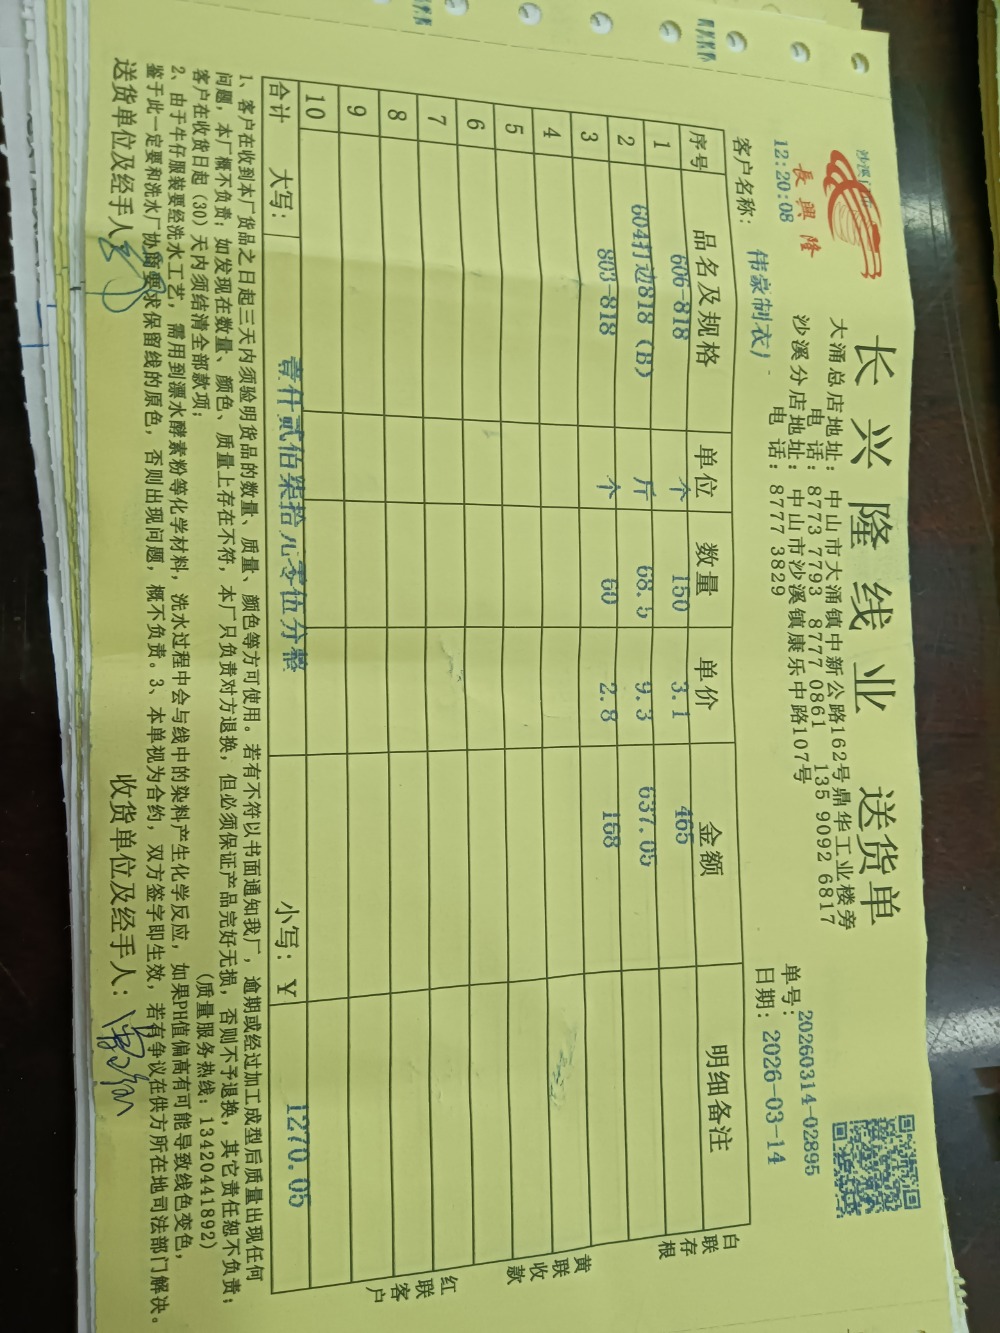 長興隆
12:20:08
长兴隆线业 送货单
大涌总店地址: 中山市大涌镇中新公路162号鼎华工业楼旁
电 话: 8773 7793 8777 0861 135 9092 6817
沙溪分店地址: 中山市沙溪镇康乐中路107号
电 话: 8777 3829
单号: 20260314-02895
日期: 2026-03-14
客户名称: 伟豪制衣厂
序号 品名及规格 单位 数量 单价 金额 明细备注
1 606-818 个 150 3.1 465
2 604打边818 (B) 斤 68.5 9.3 637.05
3 803-818 个 60 2.8 168
4
5
6
7
8
9
10
合计 大写: 壹仟贰佰柒拾元零伍分整 小写: ¥ 1270.05
白联存根
黄联收款
红联客户
1、客户在收到本厂货品之日起三天内须验明货品的数量、质量、颜色等方可使用。若有不符以书面通知我厂, 逾期或经过加工成型后质量出现任何
问题, 本厂概不负责; 如发现在数量、颜色、质量上存在不符, 本厂只负责对方退换, 但必须保证产品完好无损, 否则不予退换, 其它责任恕不负责;
客户在收货日起 (30) 天内须结清全部款项; (质量服务热线: 13420441892)
2、由于牛仔服装要经洗水工艺, 需用到漂水酵素粉等化学材料, 洗水过程中会与线中的染料产生化学反应, 如果PH值偏高有可能导致线色变色,
鉴于此一定要和洗水厂协商要求保留线的原色, 否则出现问题, 概不负责。3、本单视为合约, 双方签字即生效, 若有争议在供方所在地司法部门解决。
送货单位及经手人:
收货单位及经手人: